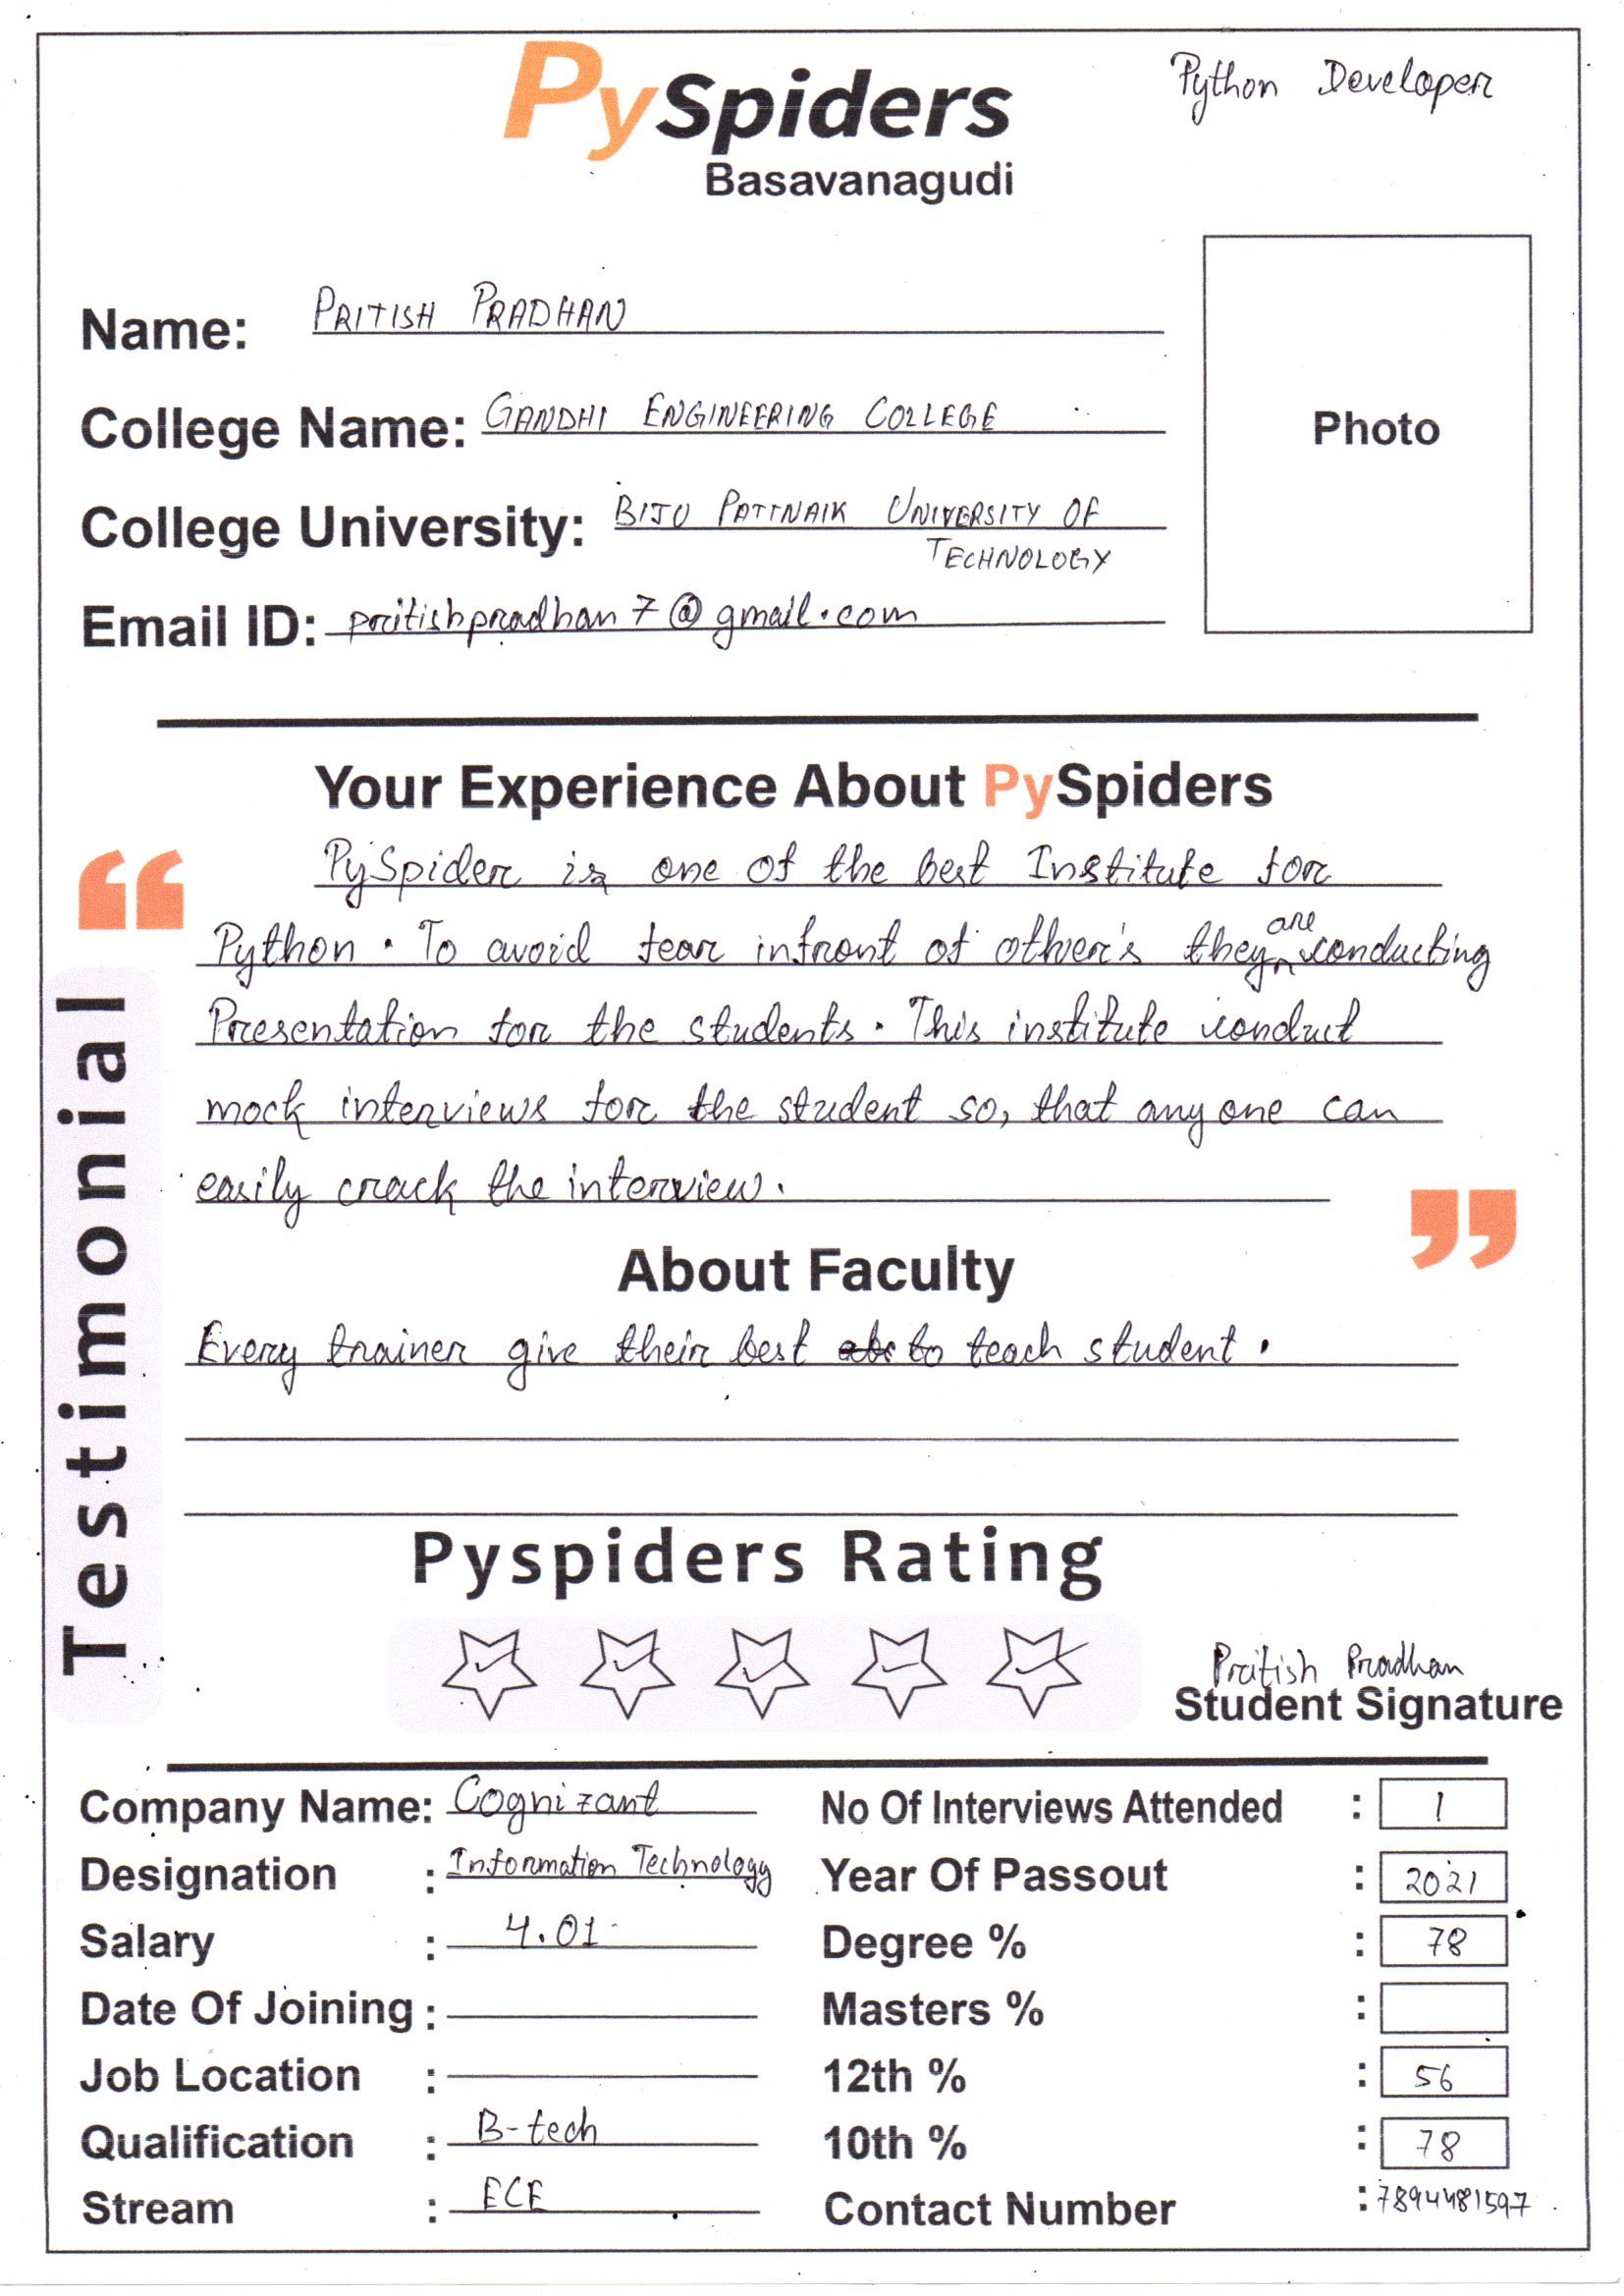 PySpiders
Python Developer
Basavanagudi
Name: PRITISH PRADHAN
College Name: GANDHI ENGINEERING COLLEGE
Photo
College University: BIJU PATTNAIK UNIVERSITY OF
TECHNOLOGY
Email ID: pritishpradhan7@gmail.com
Your Experience About PySpiders
“
PySpider is one of the best Institute for
Python. To avoid fear infront of other's they are conducting
Presentation for the students. This institute conduct
mock interviews for the student so, that any one can
easily crack the interview.
”
Testimonial
About Faculty
Every trainer give their best to teach student.
Pyspiders Rating
Pritish Pradhan
Student Signature
Company Name: Cognizant
No Of Interviews Attended : 1
Designation : Information Technology
Year Of Passout : 2021
Salary : 4.01
Degree % : 78
Date Of Joining :
Masters % :
Job Location :
12th % : 56
Qualification : B-tech
10th % : 78
Stream : ECE
Contact Number : 7894481597